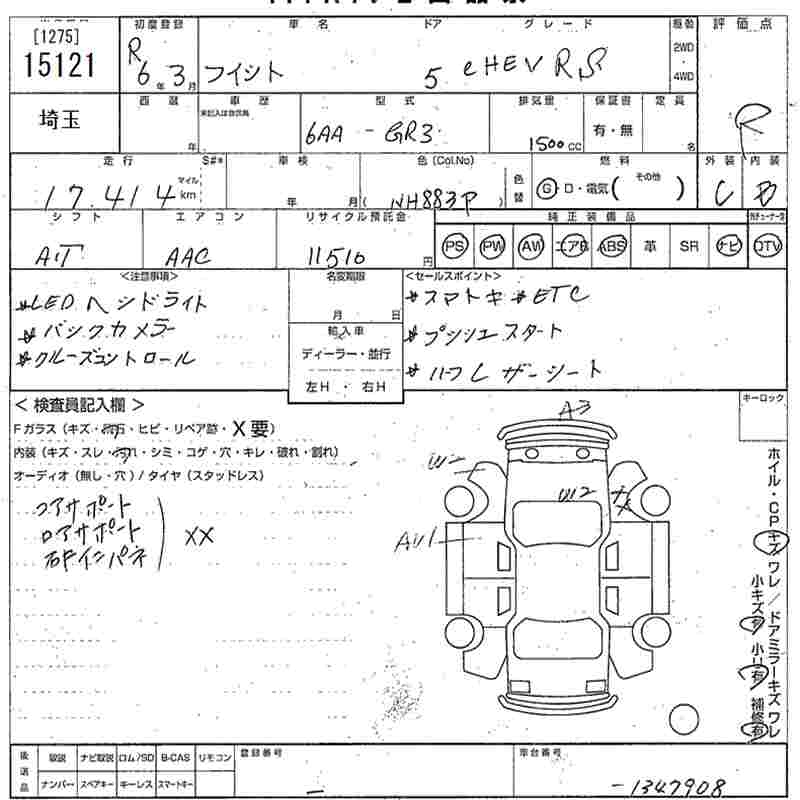 [1275]
15121
初度登録 車名 ドア グレード 駆動 評価点
R 6年 3月 フィット 5 eHEV RS 2WD
4WD
埼玉
西暦 車歴 型式 排気量 保証書 定員 R
年 未記入は自家用 6AA - GR3 1500cc 有・無 名
走行 S#* 車検 色(Col.No) 色替 燃料 外装 内装
17,414 マイル km 年 月 ( NH883P ) G・D・電気 ( その他 ) C B
シフト エアコン リサイクル預託金 純正装備品
AT AAC 11510円 PS PW AW エアB ABS 革 SR ナビ TV
<注意事項> 名変期限 <セールスポイント>
*LEDヘッドライト 月 日 *スマートキー *ETC
*バックカメラー 輸入車 *プッシュスタート
*クルーズコントロール ディーラー・並行 *ハーフレザーシート
左H・右H
<検査員記入欄> キーロック
Fガラス(キズ・飛石・ヒビ・リペア跡・X要)
内装(キズ・スレ・汚れ・シミ・コゲ・穴・キレ・破れ・割れ)
オーディオ(無し・穴)/タイヤ(スタッドレス)
コアサポート
ロアサポート XX
右Fインパネ
A3
W2
W2 X
AW1
ホイル・CPキズ ワレ/ドアミラーキズ ワレ
小キズ有 小凹有 補修有
後送品 取説 ナビ取説 ロム/SD B-CAS リモコン 登録番号 車台番号
ナンバー スペアキー キーレス スマートキー - -1347908